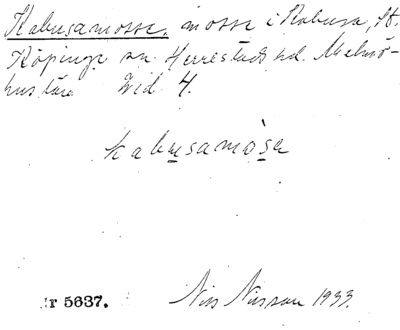 Kabusamosse, mosse i Kabusa, St.
Köpinge sn Herrestads hd. Malmö-
hus län Wid 4.
kabusamosa
Nils Nilsson 1933.
r 5637.